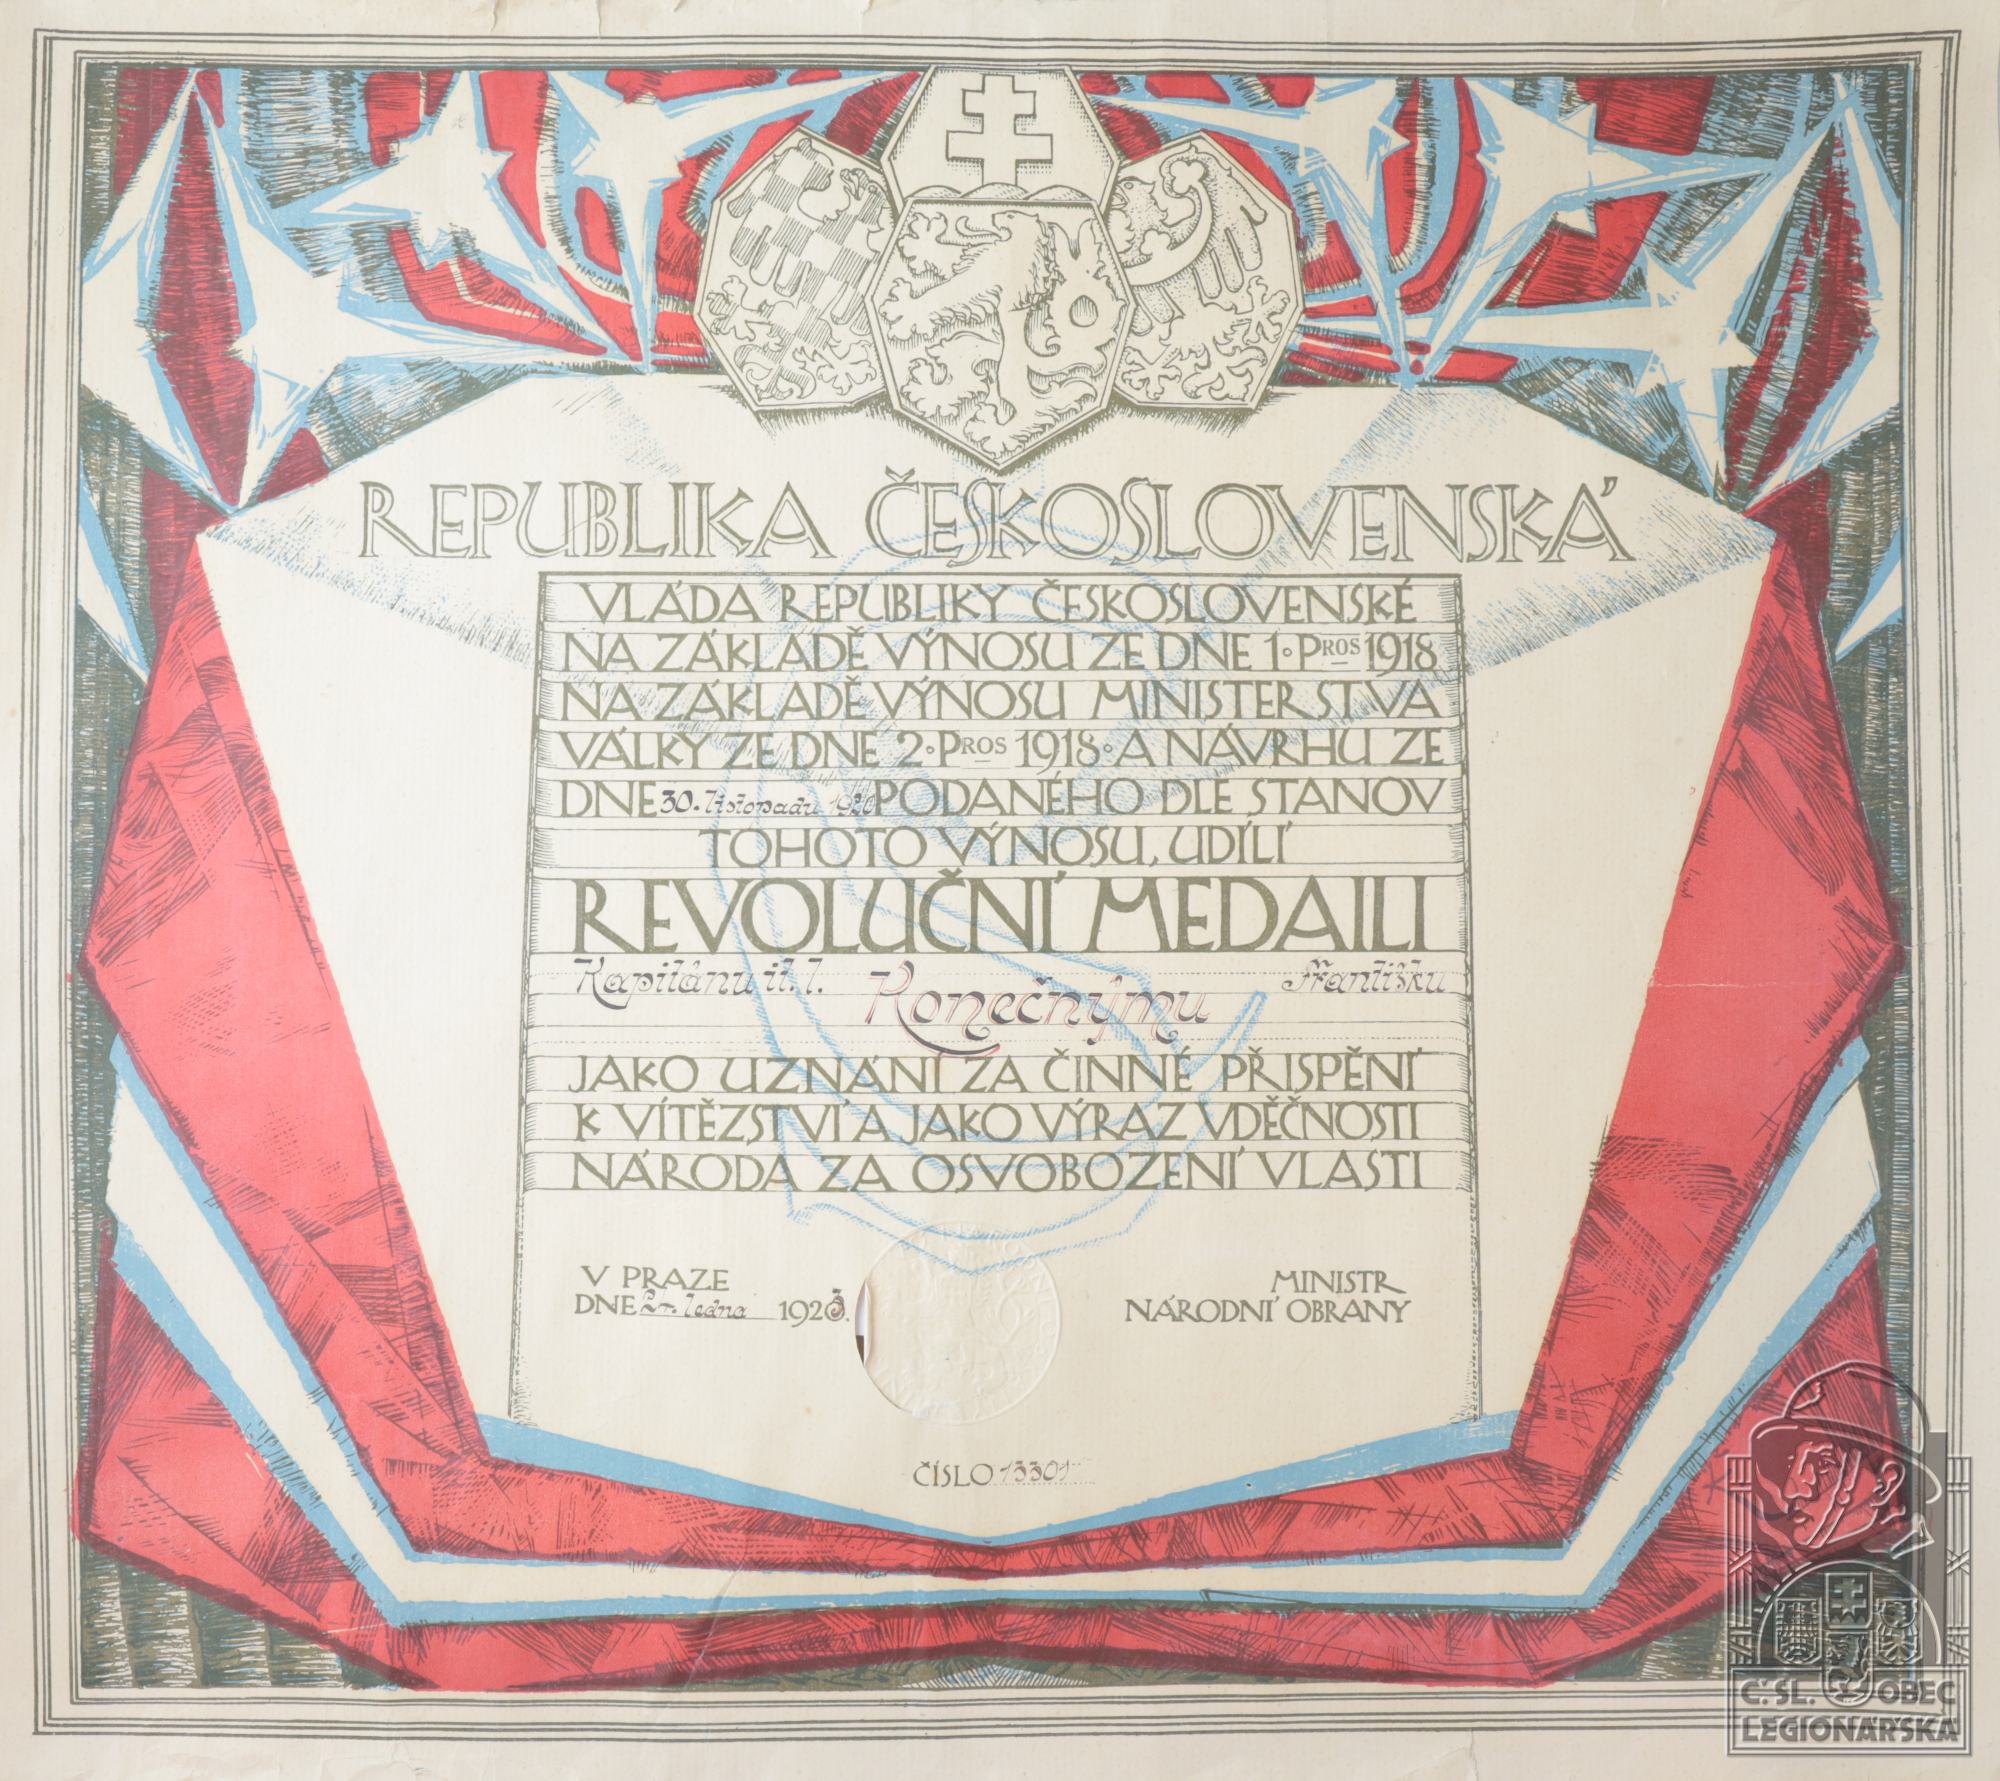 REPUBLIKA ČESKOSLOVENSKÁ
VLÁDA REPUBLIKY ČESKOSLOVENSKÉ
NA ZÁKLADĚ VÝNOSU ZE DNE 1. PROS 1918
NA ZÁKLADĚ VÝNOSU MINISTERSTVA
VÁLKY ZE DNE 2. PROS 1918. A NÁVRHU ZE
DNE 30. listopadu 1920 PODANÉHO DLE STANOV
TOHOTO VÝNOSU, UDÍLÍ
REVOLUČNÍ MEDAILI
Kapitánu it. l. Konečnýmu Františku
JAKO UZNÁNÍ ZA ČINNÉ PŘISPĚNÍ
K VÍTĚZSTVÍ A JAKO VÝRAZ VDĚČNOSTI
NÁRODA ZA OSVOBOZENÍ VLASTI
V PRAZE
DNE ledna 1923.
MINISTR
NÁRODNÍ OBRANY
ČÍSLO 13301
Č. SL. OBEC
LEGIONÁŘSKÁ